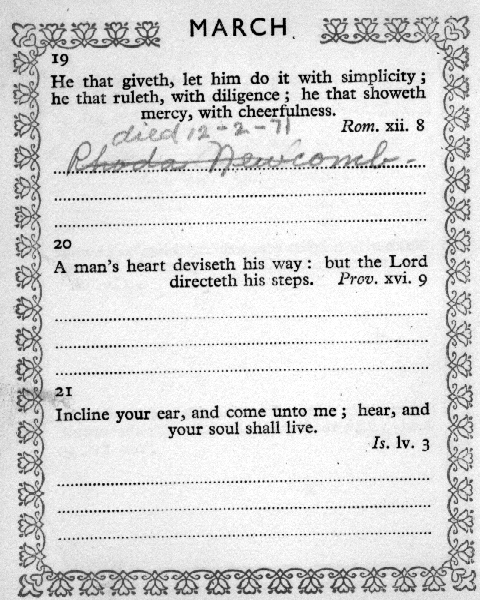 MARCH
19
He that giveth, let him do it with simplicity;
he that ruleth, with diligence; he that showeth
mercy, with cheerfulness.
Rom. xii. 8
died 12-2-71
Rhoda Newcomb.
20
A man's heart deviseth his way: but the Lord
directeth his steps. Prov. xvi. 9
21
Incline your ear, and come unto me; hear, and
your soul shall live.
Is. lv. 3